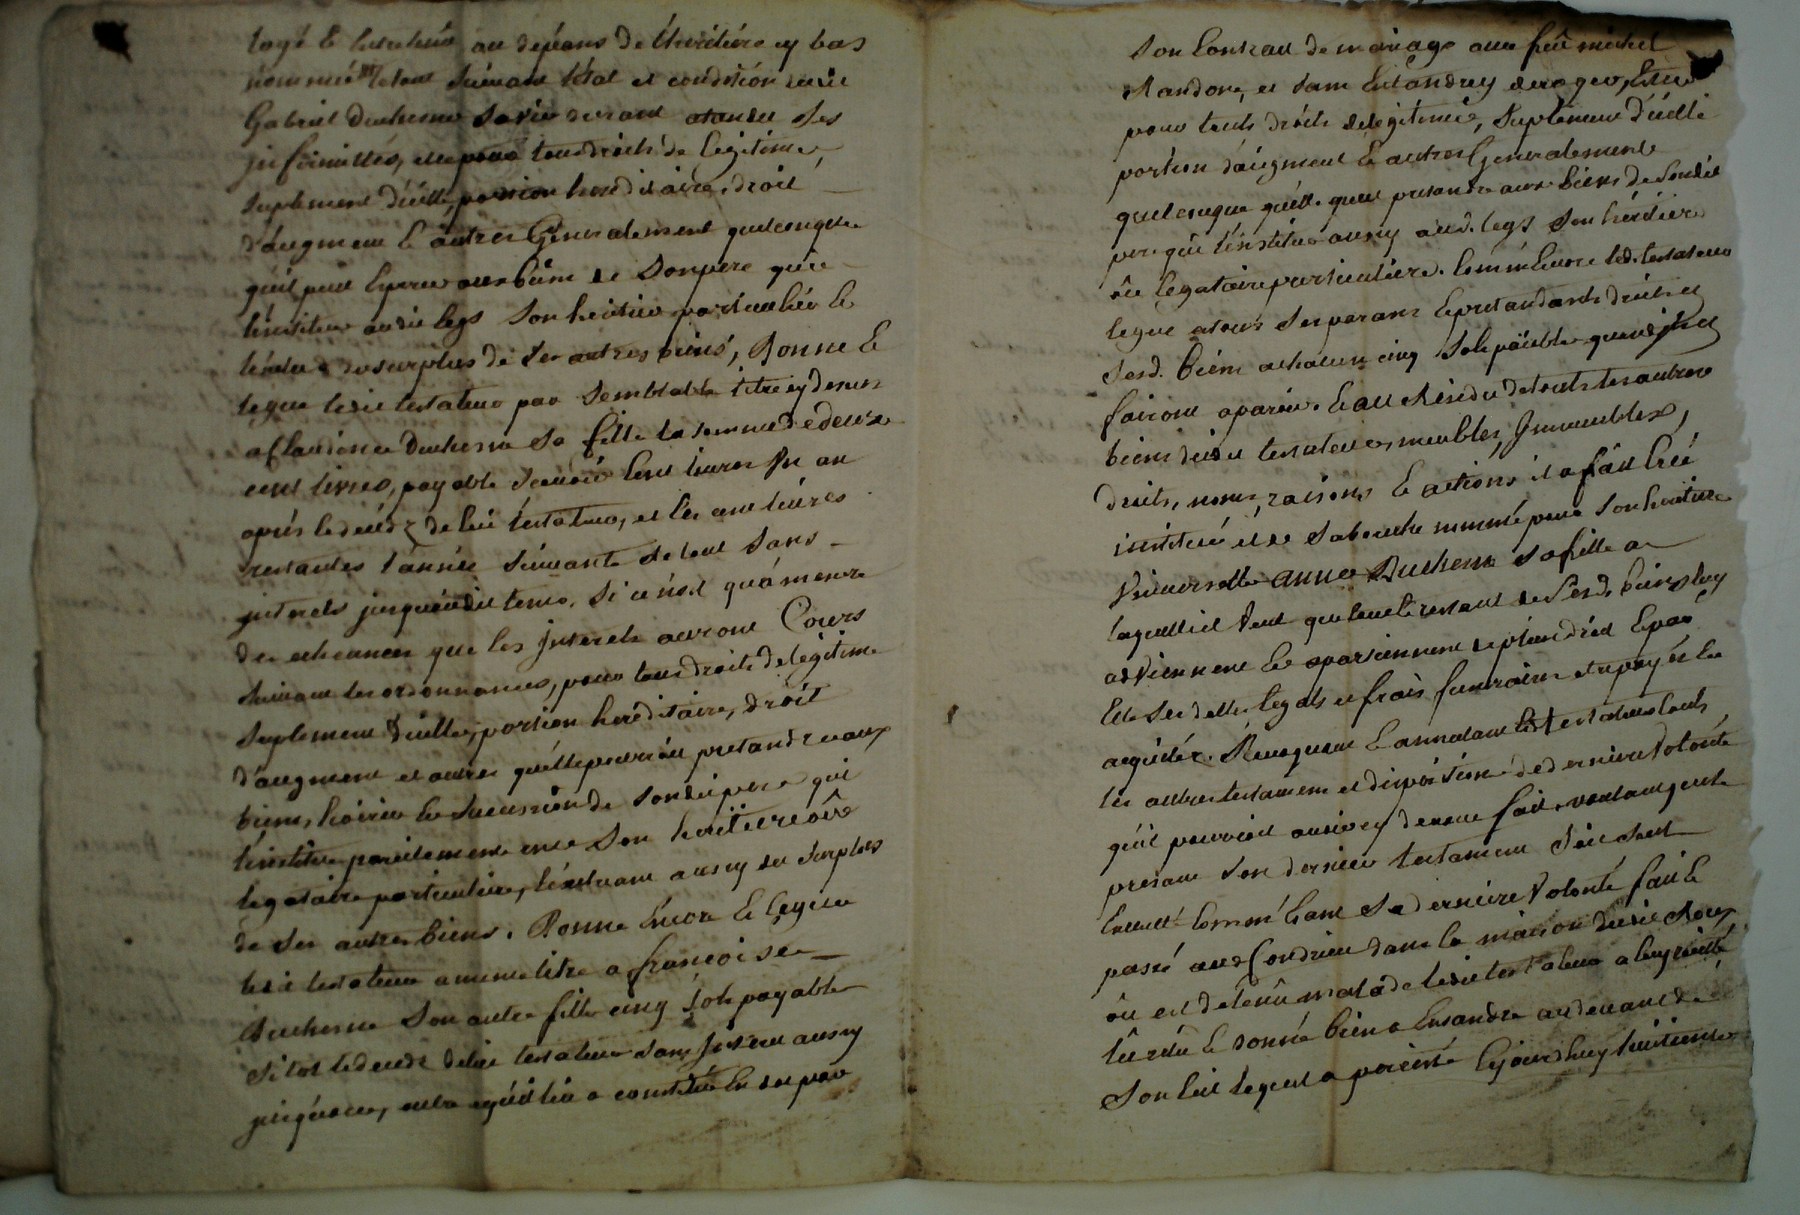 logé & entretenu au depens de l'heritiere cy bas
nommée le tout suivant l'état et condition dudit
Gabriel Duchesne sa vie durant atandu ses
jnfirmittés, et ce pour tous droits de legitime,
suplement d'icelle, portion hereditaire, droit
d'augment & autres Generalement quelconques
qu'il peut esperer aux biens de son pere qui
l'institue audit legs son heritier particulier le
du surplus de ses autres biens, Donne &
legue ledit testateur par semblable titre cy dessus
a Claudine Duchesne sa fille la somme de deux
cent livres, payable cent livres un an
après le decéds de luy testateur, et les cent livres
restantes l'année suivante le tout sans
jnterets jusques audit tems, si ce n'est qu'á mesure
des echeances que les jnterets auront Cours
suivant les ordonnances, pour tous droits de legitime
suplement d'icelle, portion hereditaire, droit
d'augment et autres qu'elle pourroit pretandre aux
biens, hoirie & sucession de sondit pere qui
l'institue pareillement en ce son heritiere où
legataire particuliere, l'excluant aussy du surplus
de ses autres biens. Donne encore & legue
ledit testateur a meme titre a françoise
Duchesne son autre fille cinq sols payable
si tot le decedz dudit testateur sans jnteret aussy
jusques a ce, outre ce qu'il luy a constitué par
son Contrau de mariage avec feu michel
Randon, et sans Entandrey deroger, Et ce
pour touts droits de legitime, suplement d'icelle
portion d'augment & autres Generalement
quelconque qu'elle peut pretandre aux biens de sondit
pere qui l'institue aussy aud. legs son héritiere
où legataire particuliere. Comm'encore led. testateur
legue a tous ses parans & pretandants droits et
sesd. biens a chacun cinq sols païable quand ils
fairont aparoir. & au Residu de touts les autres
biens dudit testateur, meubles, Jmmeubles,
droits, noms, raisons & actions il a fait créé
institué et de sa bouche nommé pour son heritiere
Vniverselle anne Duchesne sa fille a
laquelle il veut que tout le restant de sesd. biens luy
adviennent & apartiennent de plein droit & par
Elle ses dettes legats et frais funeraires etre payés &
acquités. Revoquant & annulant led. testateur touts
les autres testamens et dispositions de derniere volonté
qu'il pourroit avoir cy devant fait, voulant que le
present son dernier testament soit seul
sa derniere volonté fait &
passé aud. Condrieu dans la maison dudit
où est detenu malade ledit testateur a luy
lû relû & donné bien a Entandre au devant de
son lict le quel a persisté le jourd'huy huitieme